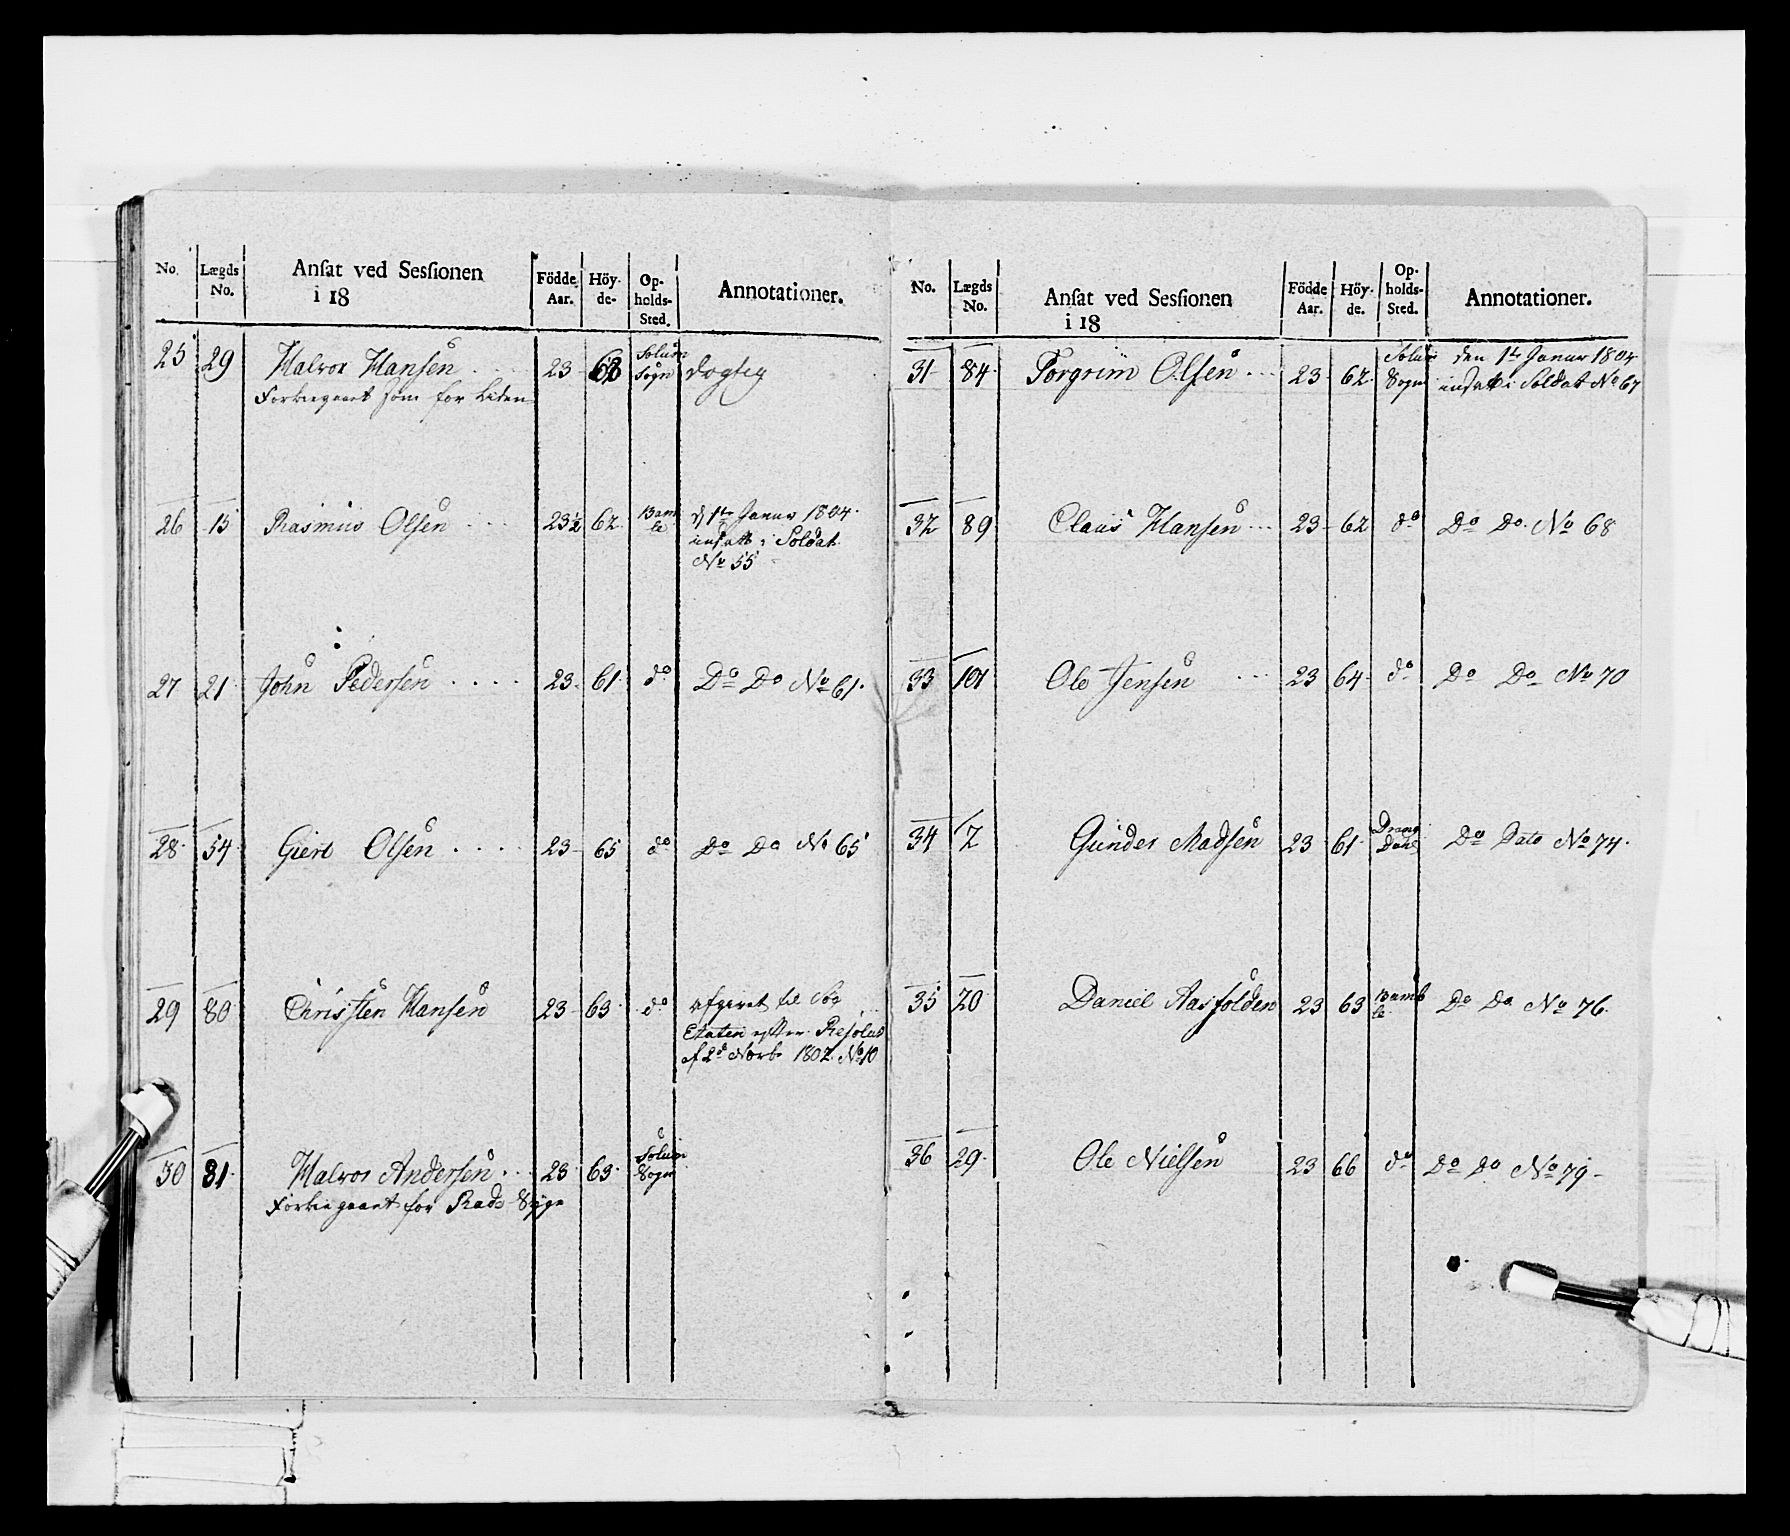 No. Lægds No. Ansat ved Sessionen i 18 Födde Aar. Höy-de- Op-holds-Sted. Annotationer.
25 29 Halvor Hansen 23 62 Solum Sogn dygtig
Forbiegaaet som for Liden
26 15 Rasmus Olsen 23½ 62 Bamble d 1te Januar 1804
indsatt i Soldat
No 55
27 21 John Pedersen 23 61 do Do Do No 61.
28 54 Giert Olsen 23 65 do Do Do No 65
29 80 Christen Hansen 23 63 do afgivet til Søe
Etaten efter Resolut
af 2d Novbr 1802 No 10
30 81 Halvor Andersen 23 63 Solum Sogn
Forbiegaaet for Rads Syge
No. Lægds No. Ansat ved Sessionen i 18 Födde Aar. Höy-de. Op-holds-Sted. Annotationer.
31 84 Torgrim Olsen 23 62 Solum Sogn den 1te Januar 1804
indsatt i Soldat No 67
32 89 Claus Hansen 23 62 do Do Do No 68
33 101 Ole Jensen 23 64 do Do Do No 70
34 7 Gunder Madsen 23 61 Drangdahl Do Dato No 74.
35 20 Daniel Aasfolden 23 63 Bamble Do Do No 76.
36 29 Ole Nielsen 23 66 do Do Do No 79